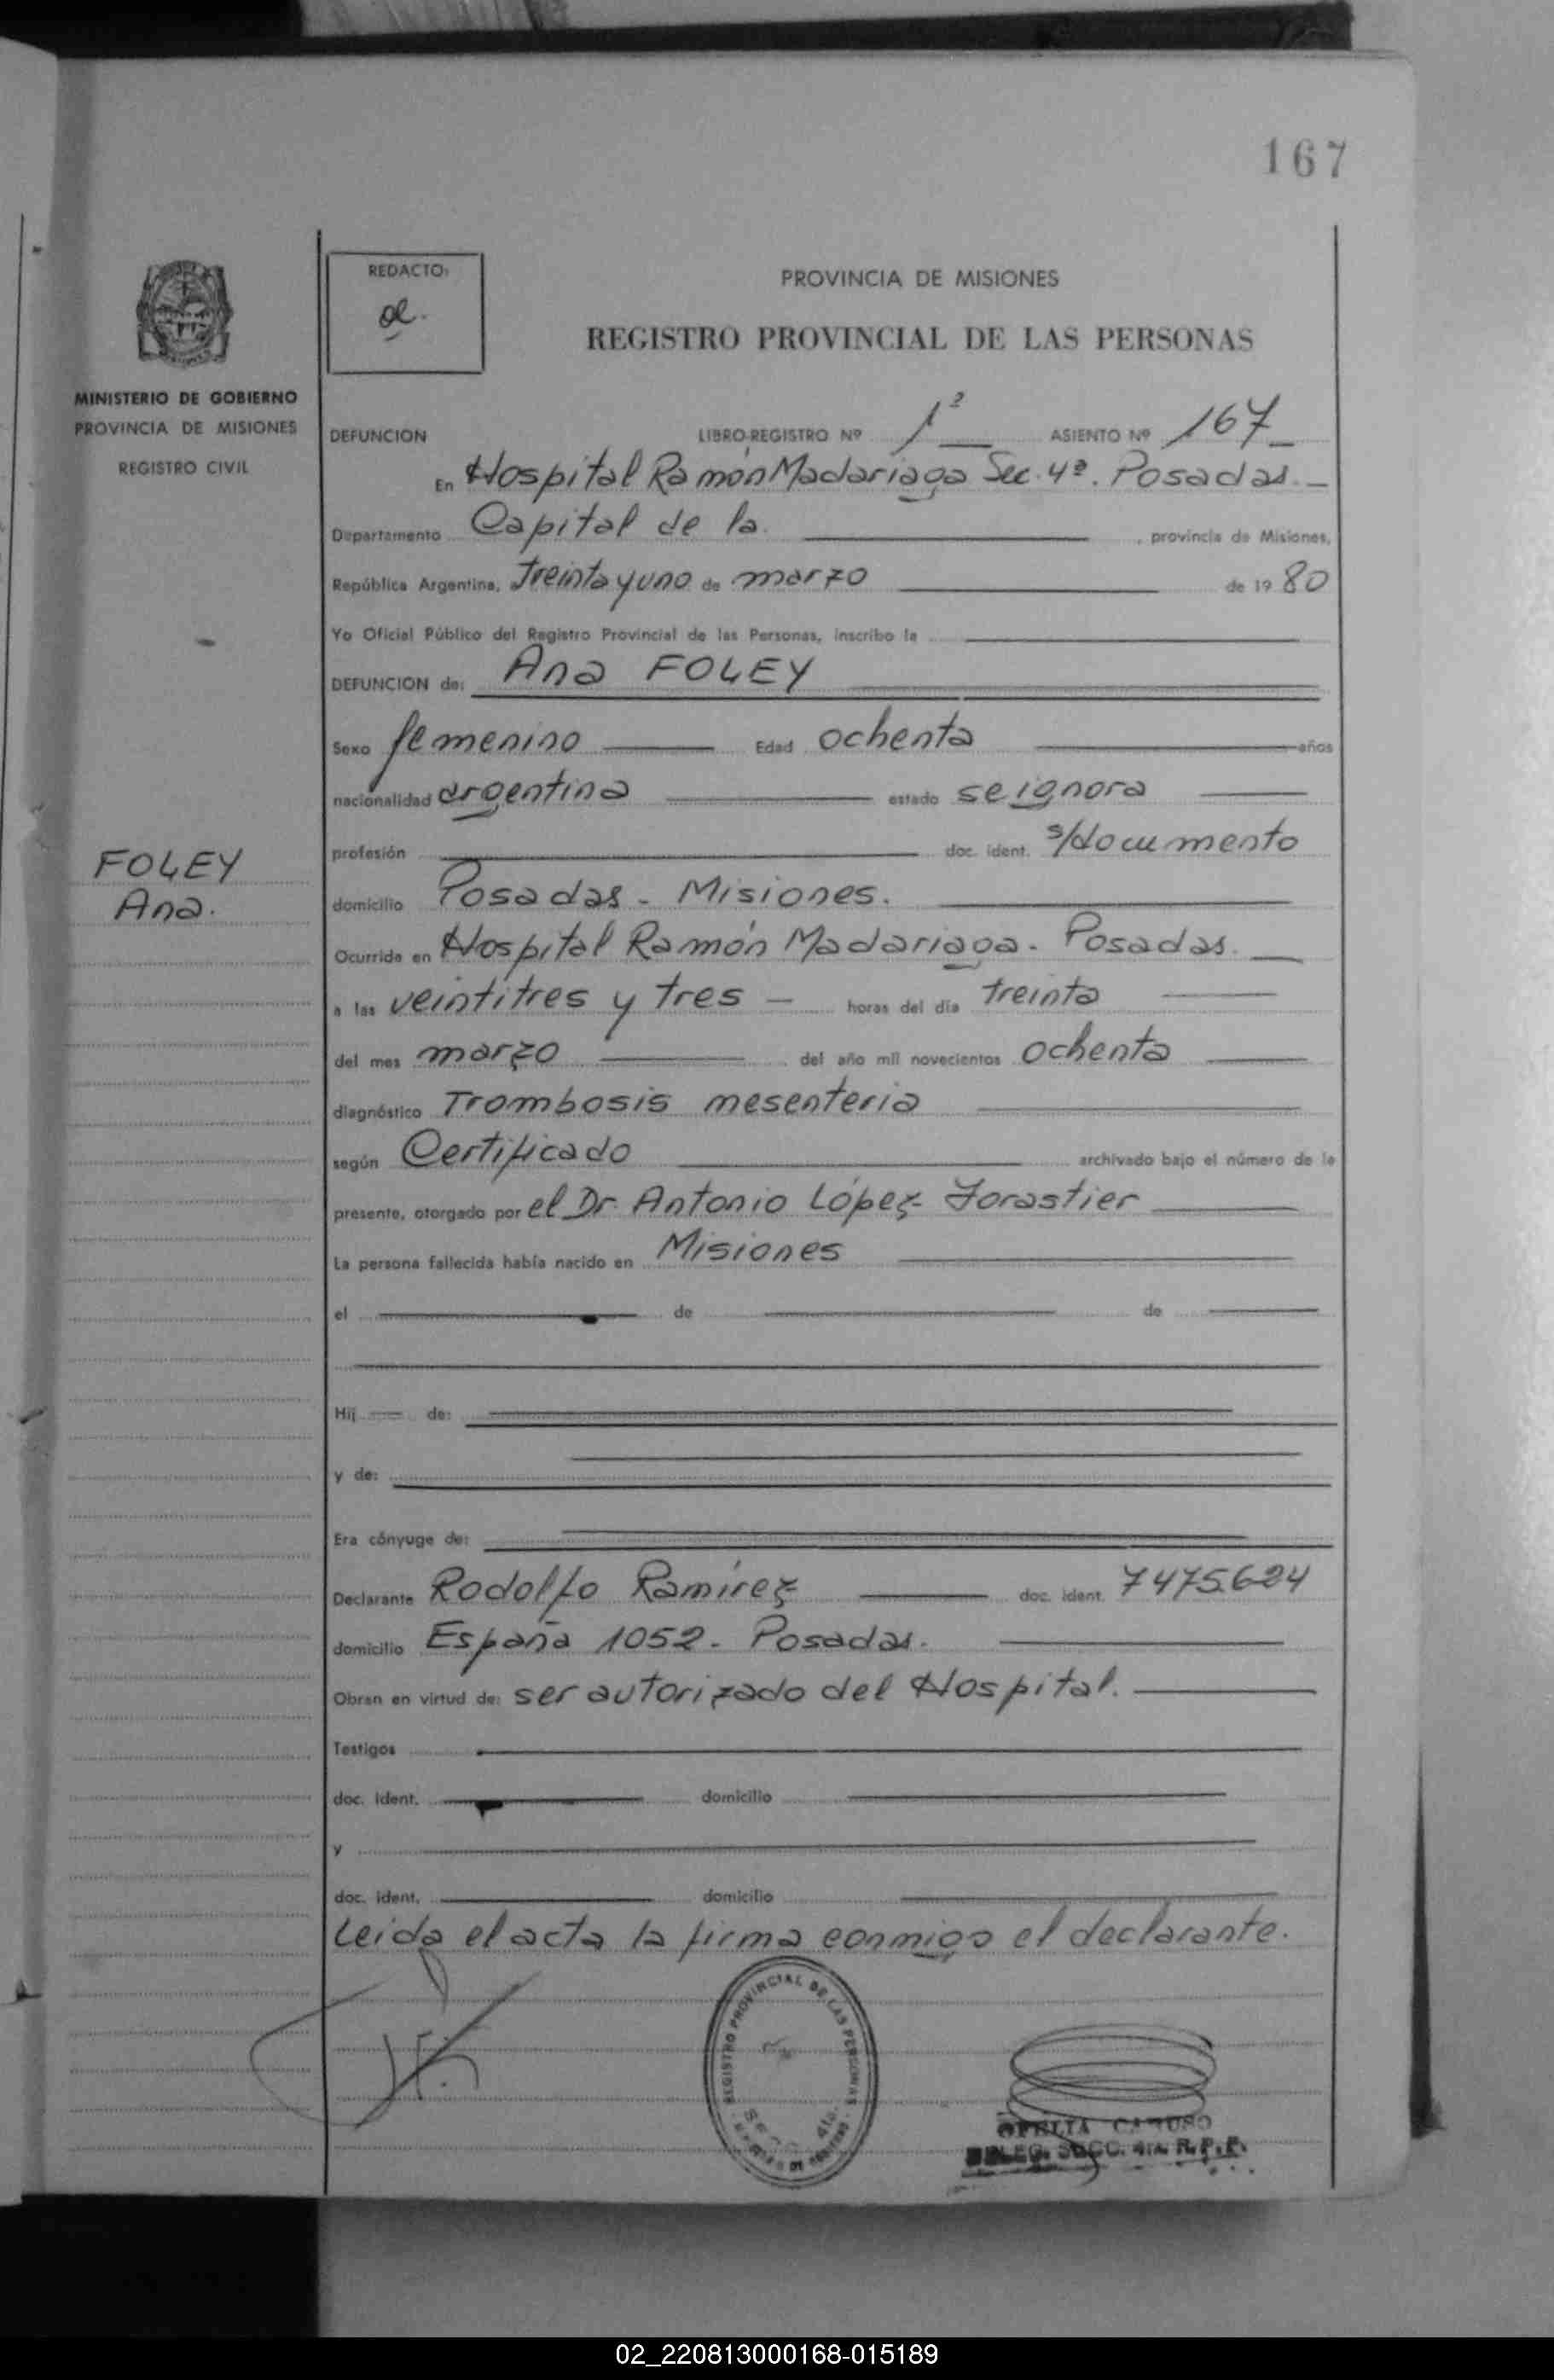 167
REDACTO:
PROVINCIA DE MISIONES
REGISTRO PROVINCIAL DE LAS PERSONAS
MINISTERIO DE GOBIERNO
PROVINCIA DE MISIONES
REGISTRO CIVIL
DEFUNCION LIBRO-REGISTRO Nº 1º ASIENTO Nº 167
En Hospital Ramón Madariaga Sec. 4ª. Posadas.
Departamento Capital de la , provincia de Misiones,
República Argentina, treinta y uno de marzo de 1980
Yo Oficial Público del Registro Provincial de las Personas, inscribo la
DEFUNCION de: Ana FOLEY
Sexo femenino Edad ochenta años
nacionalidad argentina estado se ignora
FOLEY
Ana.
profesión doc. ident. s/documento
domicilio Posadas - Misiones.
Ocurrida en Hospital Ramón Madariaga. Posadas.
a las veintitres y tres horas del día treinta
del mes marzo del año mil novecientos ochenta
diagnóstico Trombosis mesenteria
según Certificado archivado bajo el número de la
presente, otorgado por el Dr. Antonio López Forastier
La persona fallecida había nacido en Misiones
el de de
Hij de:
y de:
Era cónyuge de:
Declarante Rodolfo Ramírez doc. ident. 7475.624
domicilio España 1052. Posadas.
Obran en virtud de: ser autorizado del Hospital.
Testigos
doc. ident. domicilio
y
doc. ident. domicilio
Leida el acta la firma conmigo el declarante.
REGISTRO PROVINCIAL DE LAS PERSONAS
OFELIA CARUSO
DELEG. SECC. 4ta. R.P.P.
02_220813000168-015189